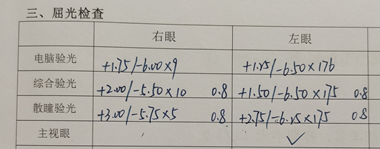 三、屈光检查
右眼 左眼
电脑验光 +1.75/-6.00×9 +1.25/-6.50×176
综合验光 +2.00/-5.50×10 0.8 +1.50/-6.50×175 0.8
散瞳验光 +3.00/-5.75×5 0.8 +2.75/-6.25×175 0.8
主视眼 ✓